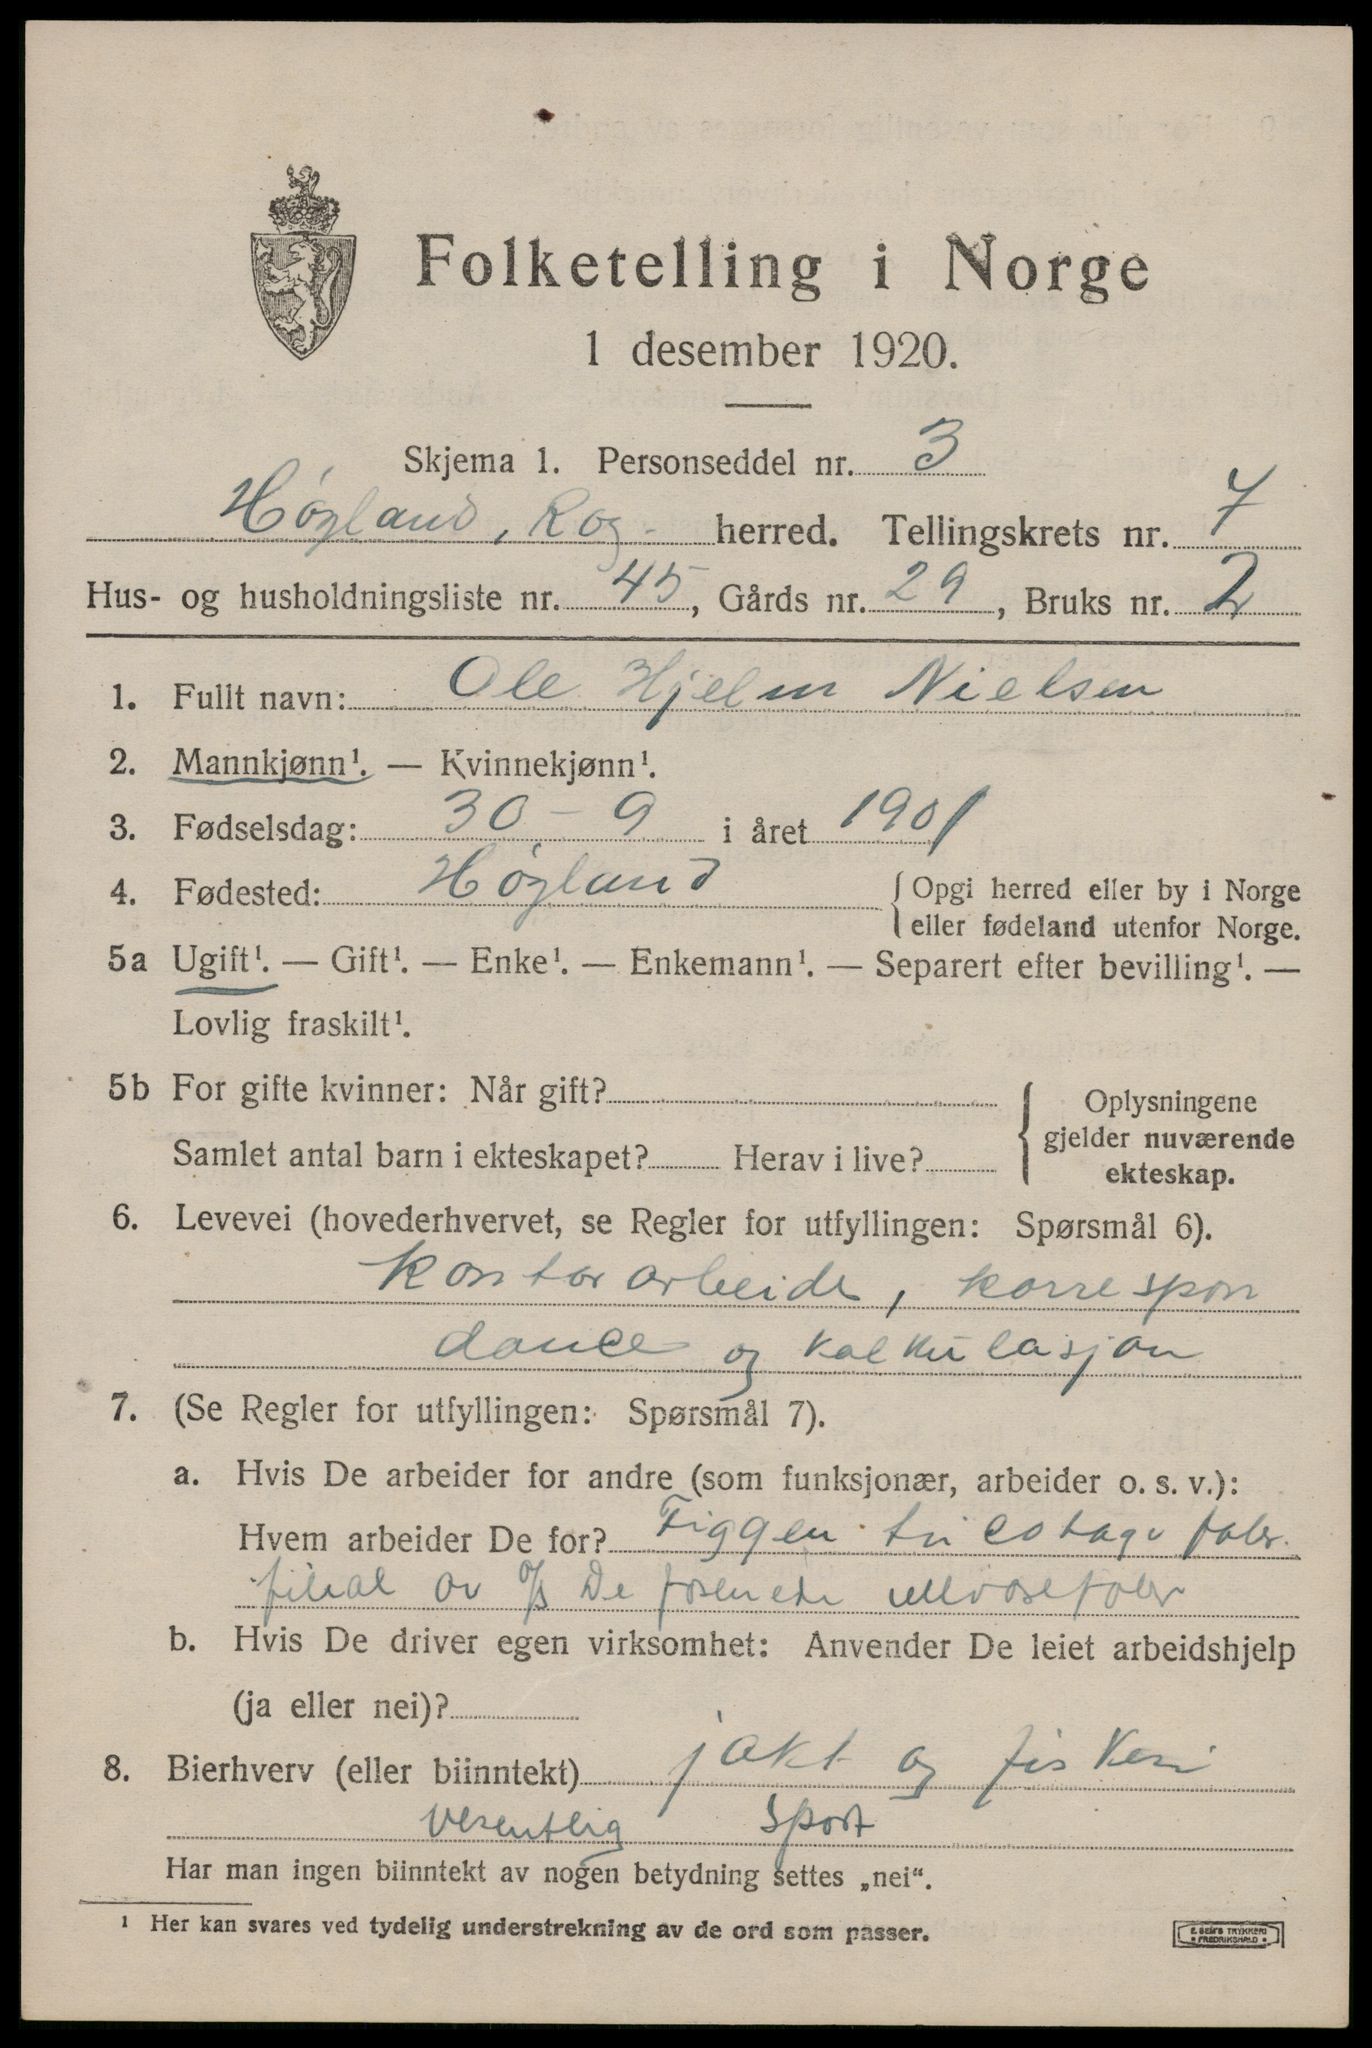 Folketelling i Norge
1 desember 1920.
Skjema 1. Personseddel nr. 3
Høgland, Rog. herred. Tellingskrets nr. 7
Hus- og husholdningsliste nr. 45, Gårds nr. 29, Bruks nr. 2
1. Fullt navn: Ole Hjelm Nielsen
2. Mannkjønn¹. — Kvinnekjønn¹.
3. Fødselsdag: 30 - 9 i året 1901
4. Fødested: Høgland { Opgi herred eller by i Norge
eller fødeland utenfor Norge.
5a Ugift¹. — Gift¹. — Enke¹. — Enkemann¹. — Separert efter bevilling¹. —
Lovlig fraskilt¹.
5b For gifte kvinner: Når gift?
Samlet antal barn i ekteskapet? Herav i live?
{ Oplysningene
gjelder nuværende
ekteskap.
6. Levevei (hovederhvervet, se Regler for utfyllingen: Spørsmål 6).
Kontorarbeide, korrespon
dance og kalkulasjon
7. (Se Regler for utfyllingen: Spørsmål 7).
a. Hvis De arbeider for andre (som funksjonær, arbeider o. s. v.):
Hvem arbeider De for? Figgen tricotage fabr.
filial av A/S De forenede uldvarefabr
b. Hvis De driver egen virksomhet: Anvender De leiet arbeidshjelp
(ja eller nei)?
8. Bierhverv (eller biinntekt) jakt og fiskeri
vesentlig sport
Har man ingen biinntekt av nogen betydning settes „nei“.
¹ Her kan svares ved tydelig understrekning av de ord som passer.
E. SEMS TRYKKERI
FREDRIKSHALD